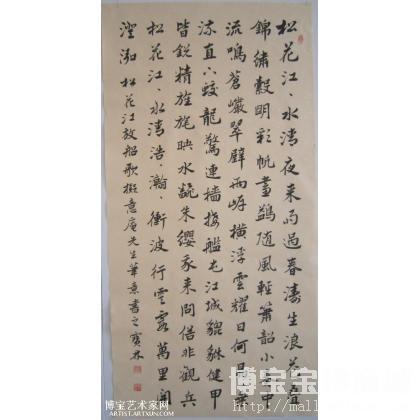 松花江、水清夜来雨過春濤生浪花疊
錦繡縠明彩帆畫鷁随風輕簫韶小奏中
流鳴蒼巖翠壁兩岸橫浮雲耀日何晶、乘
流直下蛟龍驚連檣接艦屯江城貔貅健甲
皆銳精旌旄映水翻朱纓我来問俗非觀兵
松花江、水清浩、瀚、衝波行雲霞萬里開
澄泓 松花江放船歌 擬意庵先生筆意書之 寶林
博宝艺术家网